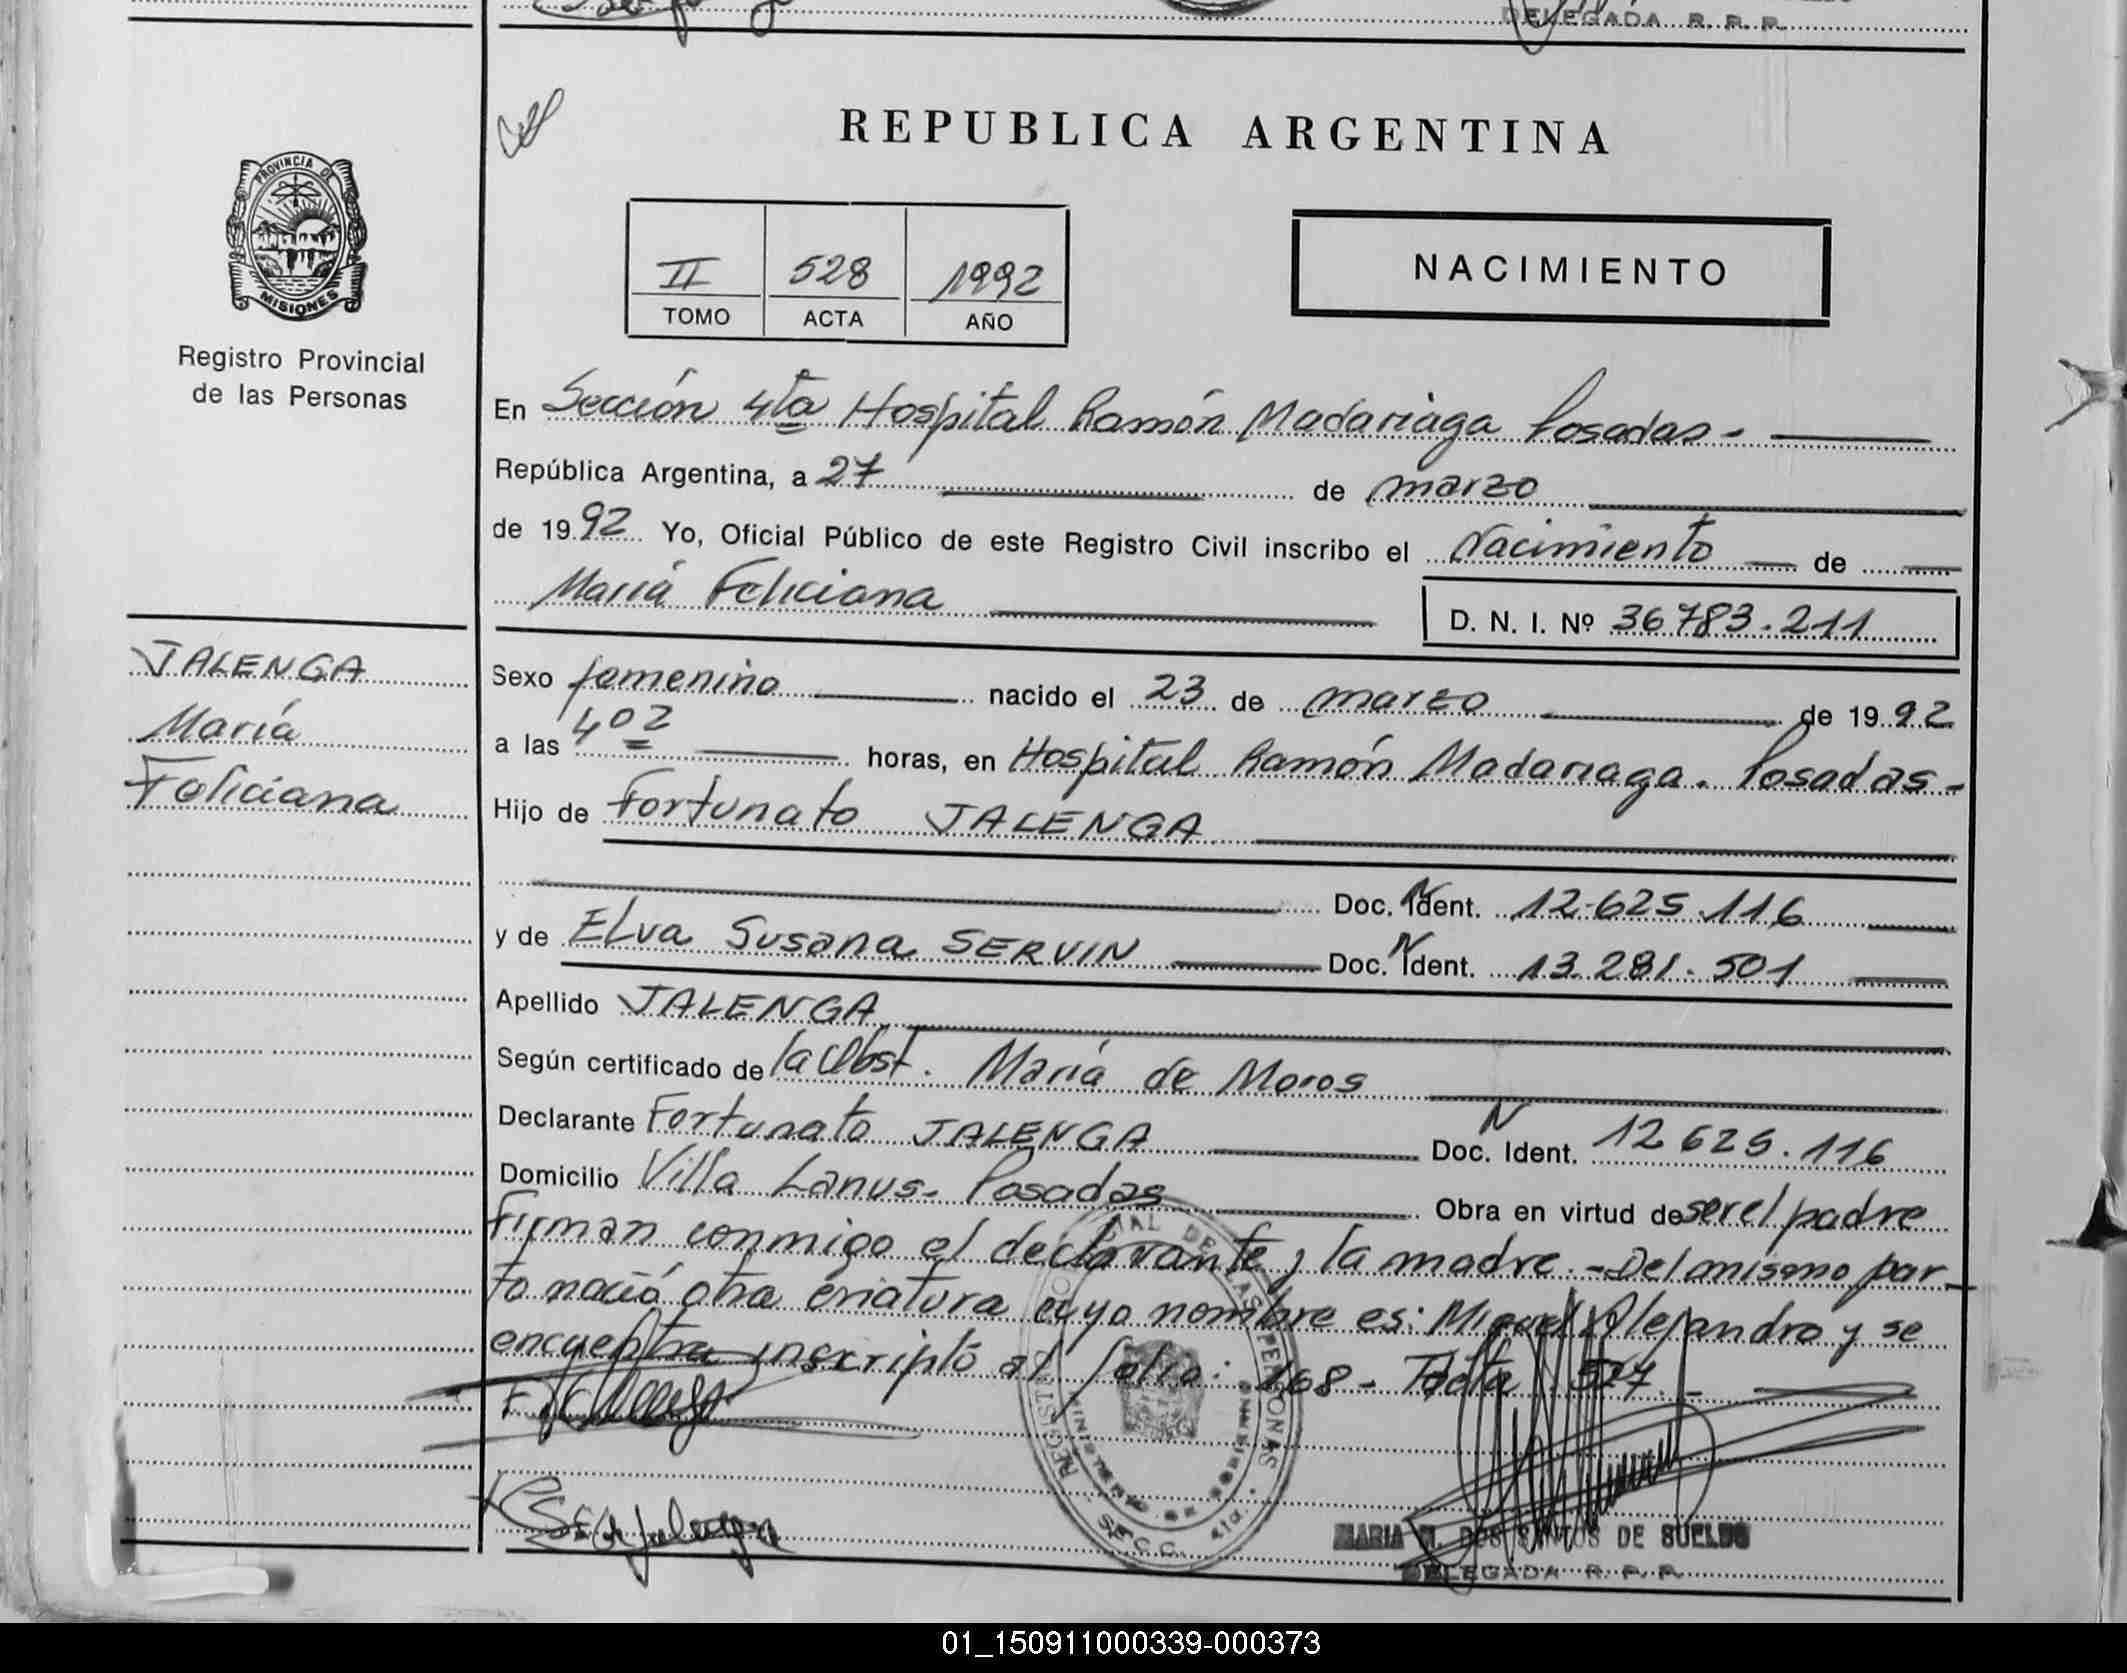 DELEGADA R. P. P.
REPUBLICA ARGENTINA
PROVINCIA DE
MISIONES
Registro Provincial
de las Personas
II 528 1992
TOMO ACTA AÑO
NACIMIENTO
En Sección 4ta Hospital Ramón Madariaga Posadas-
República Argentina, a 27 de marzo
de 1992 Yo, Oficial Público de este Registro Civil inscribo el Nacimiento de
María Feliciana
D. N. I. Nº 36783.211
JALENGA
María
Feliciana
Sexo femenino nacido el 23 de marzo de 1992
a las 402 horas, en Hospital Ramón Madariaga. Posadas-
Hijo de Fortunato JALENGA
Doc. N Ident. 12.625.116
y de ELva Susana SERVIN Doc. N Ident. 13.281.501
Apellido JALENGA
Según certificado de la Obst. María de Moros
Declarante Fortunato JALENGA Doc. N Ident. 12625.116
Domicilio Villa Lanus- Posadas Obra en virtud de ser el padre
Firman conmigo el declarante y la madre.-Del mismo par-
to nació otra criatura cuyo nombre es: Miguel Alejandro y se
encuentra inscripto al folio: 168- Acta 527.-
REGISTRO DE LAS PERSONAS
SECC. 4ta.
MARIA M. DOS SANTOS DE SUELDO
DELEGADA R. P. P.
01_150911000339-000373